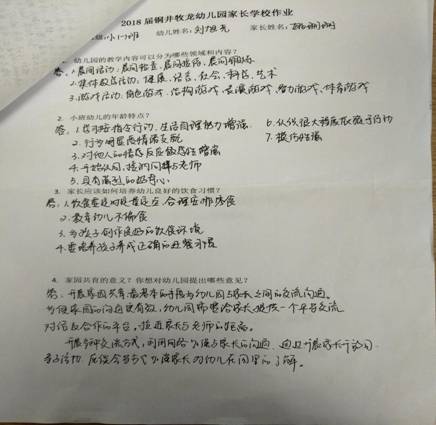 2018 届铜井牧龙幼儿园家长学校作业
班级:小(一)班 幼儿姓名: 刘旭尧 家长姓名:
1、幼儿园的教学内容可以分为哪些领域和内容?
答、1.晨间活动:晨间检查、晨间接待、晨间锻炼
2.集体教育活动:健康、语言、社会、科技、艺术
3.游戏活动:角色游戏、结构游戏、表演游戏、智力游戏、体育游戏
2、小班幼儿的年龄特点?
答、1.能听指令行动,生活自理能力增强 6.认识很大程度依赖于行动
2.行为明显受情绪支配 7.模仿性强
3.对他人的情感反应敏感性增强
4.开始认同、接纳同伴与老师
5.具有强烈的好奇心。
3、家长应该如何培养幼儿良好的饮食习惯?
答:1.饮食要定时定量定点,合理安排零食
2.教育幼儿不偏食
3.为孩子创作良好的饮食环境
4.要培养孩子养成正确的进餐习惯
4、家园共育的意义?你想对幼儿园提出哪些意见?
答:开展家园共育最基本的手段为幼儿园与家长之间的交流沟通。
为使家园的沟通更有效,幼儿园需要给家长提供一个平等交流
对话及合作的平台,拉近家长与老师的距离。
开展多种交流方式,利用网络加强与家长的沟通、通过开展家长开放日、
亲子活动、反馈会等方式加强家长对幼儿在园里的了解。